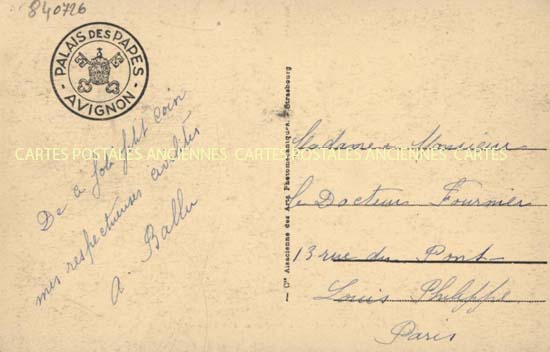 840726
PALAIS DES PAPES
- AVIGNON -
De ce joli petit coin
mes respectueuses amitiés
A. Ballu
Cie Alsacienne des Arts Photomécaniques, Strasbourg
Madame Monsieur
le Docteur Fournier
13 rue du Pont
Louis Philippe
Paris
CARTES POSTALES ANCIENNES CARTES POSTALES ANCIENNES CARTES POSTALES ANCIENNES